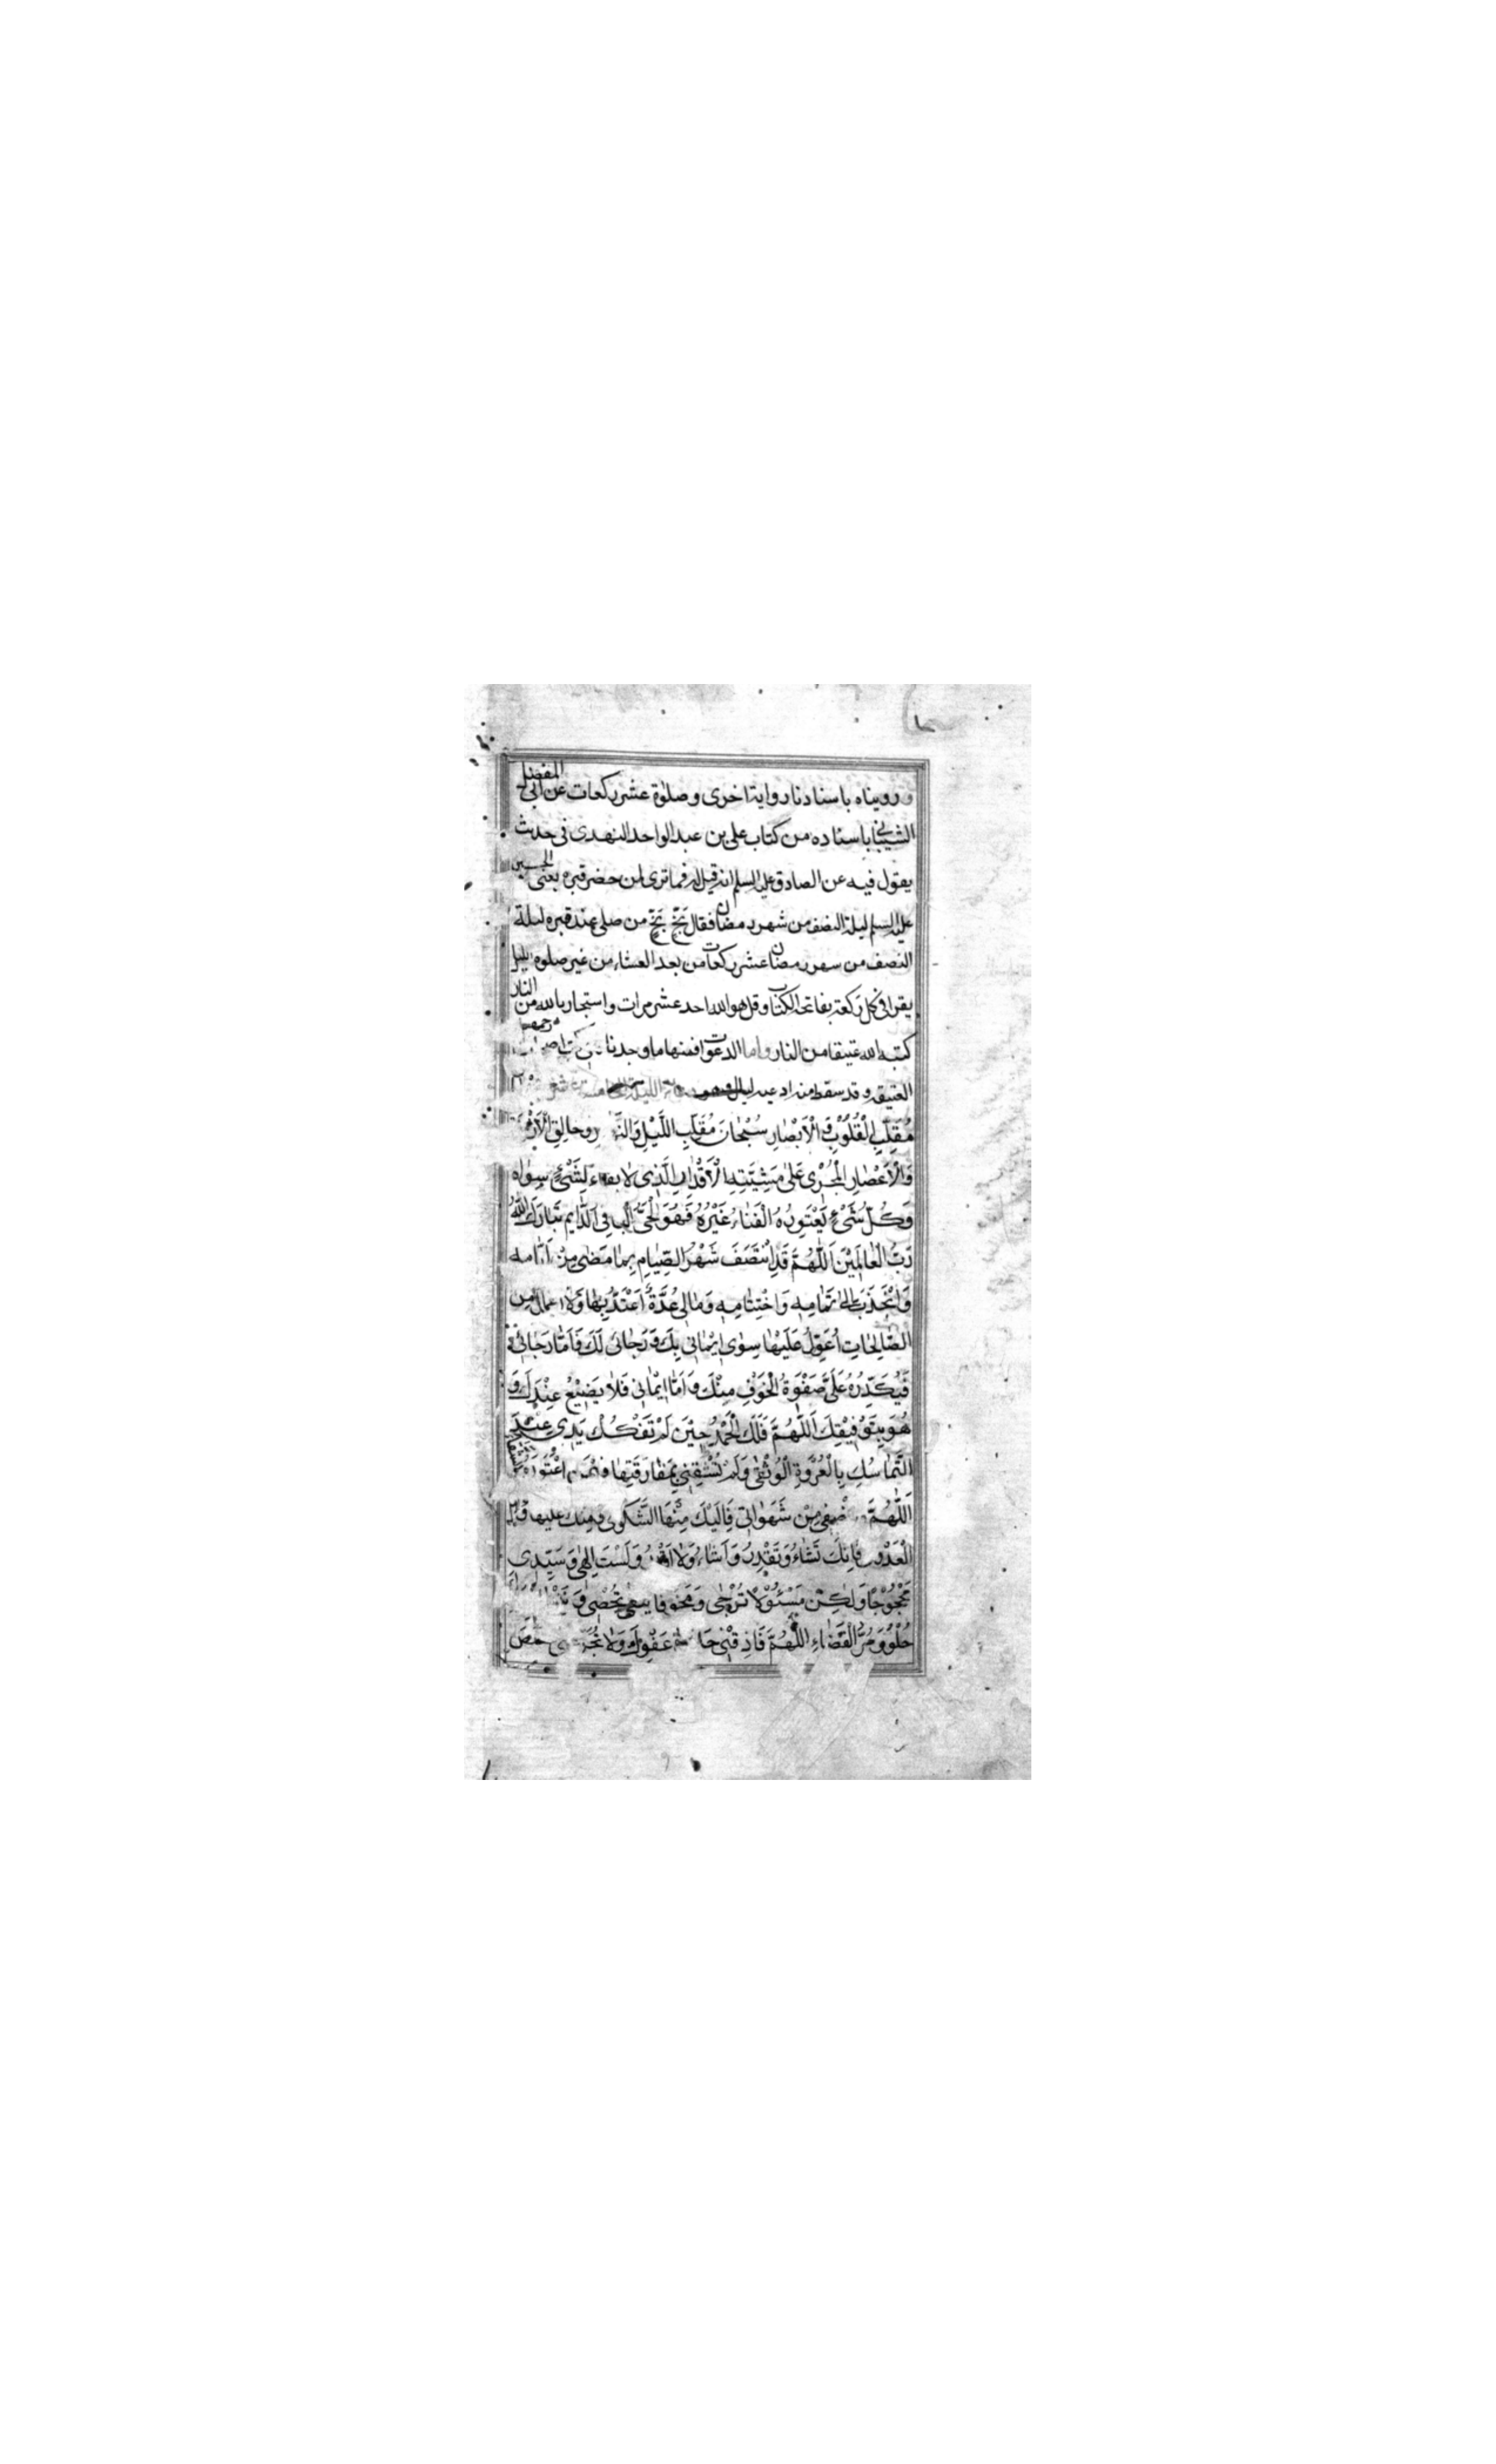 ورويناه باسنادنا رواية اخرى وصلوة عشر ركعات عن ابى المفضل
الشيبانى باسناده من كتاب على بن عبد الواحد النهدى فى حديث
يقول فيه عن الصادق عليه السلم انه قيل له فما ترى لمن حضر قبره يعنى الحسين
عليه السلم ليلة النصف من شهر رمضان فقال بَخٍّ بَخٍّ من صلى عند قبره ليلة
النصف من شهر رمضان عشر ركعات من بعد العشاء من غير صلوة الليل
يقرا فى كل ركعة بفاتحة الكتاب وقل هو الله احد عشر مرات واستجار بالله من النار
كتبه الله عتيقا من النار واما الدعوات فمنها ما وجدنا
العتيقه وقد سقط منه ادعيه ليال الليلة
مُقَلِّبِ الْقُلُوْبِ وَ الْاَبْصٰارِ سُبْحٰانَ مُقَلِّبِ اللَّيْلِ وَالنَّهٰارِ وخالِقِ الْاَزْمِنَةِ
وَالْاَعْصٰارِ الْمُجْرٰى عَلٰى مَشِيَّتِهِ الْاَقْدٰارِ الَّذِى لا بقاء لِشَىْءٍ سِوٰاه
وَكُلُّ شَىْءٍ يَعْتَوِرُهُ الْفَنٰاءُ غَيْرُهُ فَهُوَ الْحَىُّ الْباقِى الدّٰايِم تَبٰارَكَ اللّٰهُ
رَبُّ الْعٰالَمِيْنَ اَللّٰهُمَّ قَدِ انْتَصَفَ شَهْرُ الصِّيٰامِ بِمٰا مَضٰى مِنْ اَيّٰامه
وَانْجَذَبَ اِلٰى تَمٰامِهِ وَاخْتِتٰامِهِ وَمٰالِى عُدَّةٌ اَعْتَدُّ بِهٰا وَلاٰ اعمال مِن
الصّٰالِحٰاتِ اُعَوِّلُ عَلَيْهٰا سِوٰى اِيْمٰانِى بِكَ وَ رَجٰائِى لَكَ فَاَمّٰا رَجٰائِى
فَيُكَدِّرُهُ عَلَىَّ صَفْوَةُ الْخَوْفِ مِنْكَ وَ اَمّٰا اِيْمٰانِى فَلاٰ يَضِيْعُ عِنْدَكَ وَ
هُوَ بِتَوْفِيْقِكَ اَللّٰهُمَّ فَلَكَ الْحَمْدُ حِيْنَ لَمْ تَفْكُكْ يَدِى عِنْدَ
التَّمٰاسُكِ بِالْعُرْوَةِ الْوُثْقٰى وَلَمْ تُشْقِنِى بِمُفٰارَقَتِهٰا
اَللّٰهُمَّ مِنْ شَهَوٰاتِى فَاِلَيْكَ مِنْهَا الشَّكْوٰى وَمِنك عليها
الْعَدْوٰى فَاِنَّكَ تَشٰاءُ وَتَقْدِرُ وَ اَشٰاءُ وَلاٰ اَقْدِرُ وَلَسْتَ اِلٰهِى وَ سَيِّدِى
مَحْجُوْجًا وَلٰكِنْ مَسْئُوْلاً تُرْجٰى وَ مَخُوفا
حُلْوُ وَ مُرُّ الْقَضٰاءِ اللّٰهُمَّ فَاَذِقْنِى عَفْوِكَ وَلاٰ